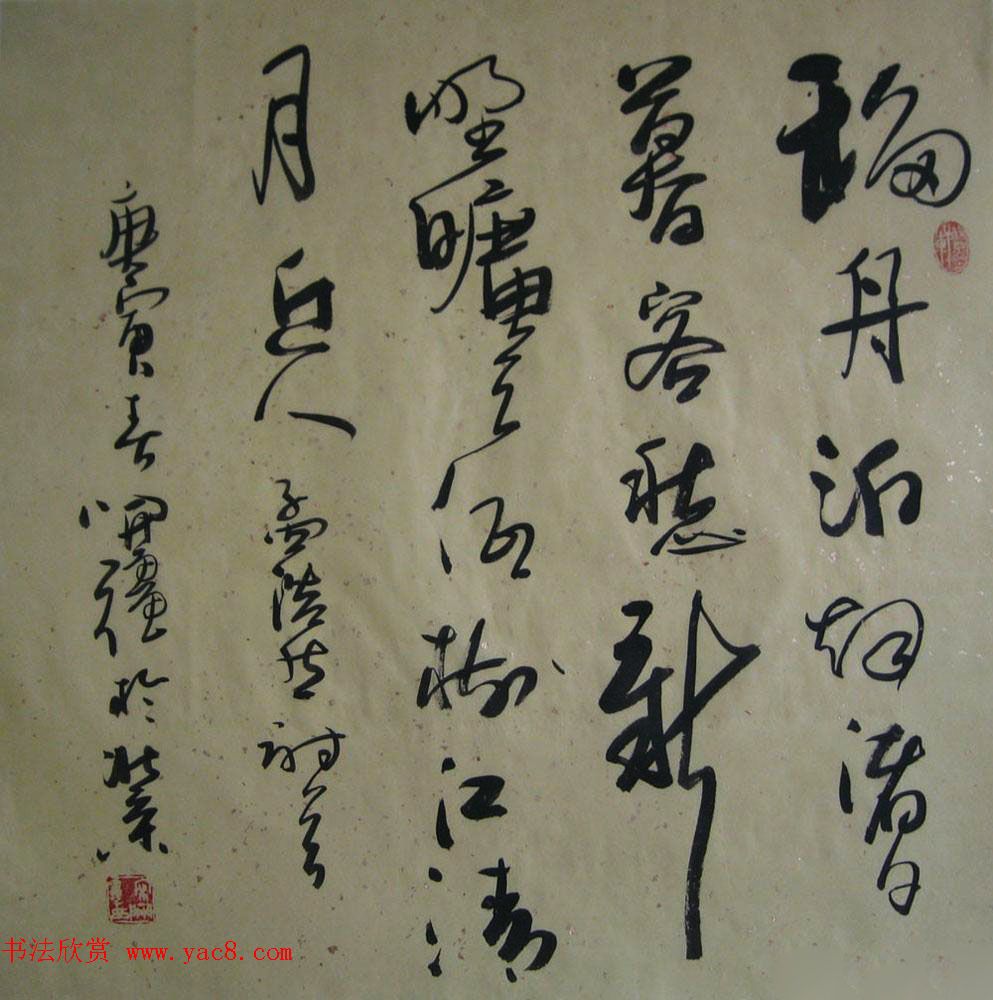 移舟泊烟渚日
暮客愁新
野旷天低树江清
月近人 孟浩然诗
庚寅春 於北京
书法欣赏 www.yac8.com